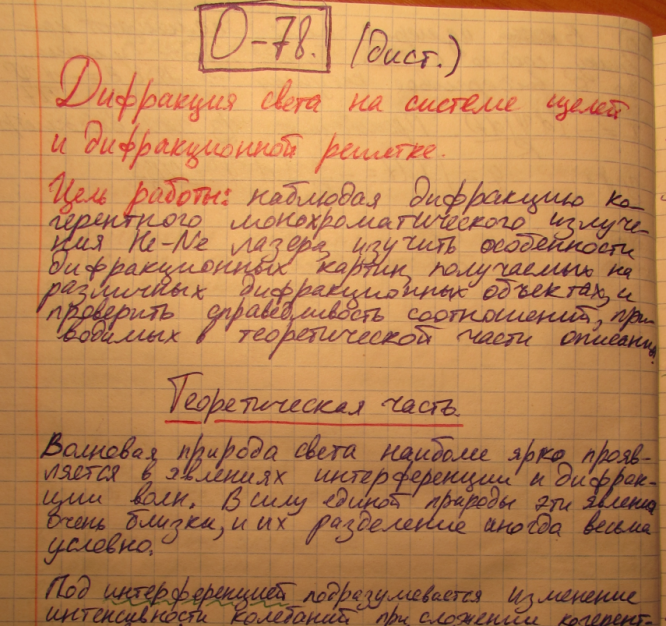 О-78. (дист.)
Дифракция света на системе щелей
и дифракционной решетке.
Цель работы: наблюдая дифракцию ко-
герентного монохроматического излуче-
ния He-Ne лазера, изучить особенности
дифракционных картин, получаемых на
различных дифракционных объектах, и
проверить справедливость соотношений, при-
водимых в теоретической части описания.
Теоретическая часть.
Волновая природа света наиболее ярко прояв-
ляется в явлениях интерференции и дифрак-
ции волн. В силу единой природы эти явления
очень близки, и их разделение иногда весьма
условно.
Под интерференцией подразумевается изменение
интенсивности колебаний при сложении когерент-